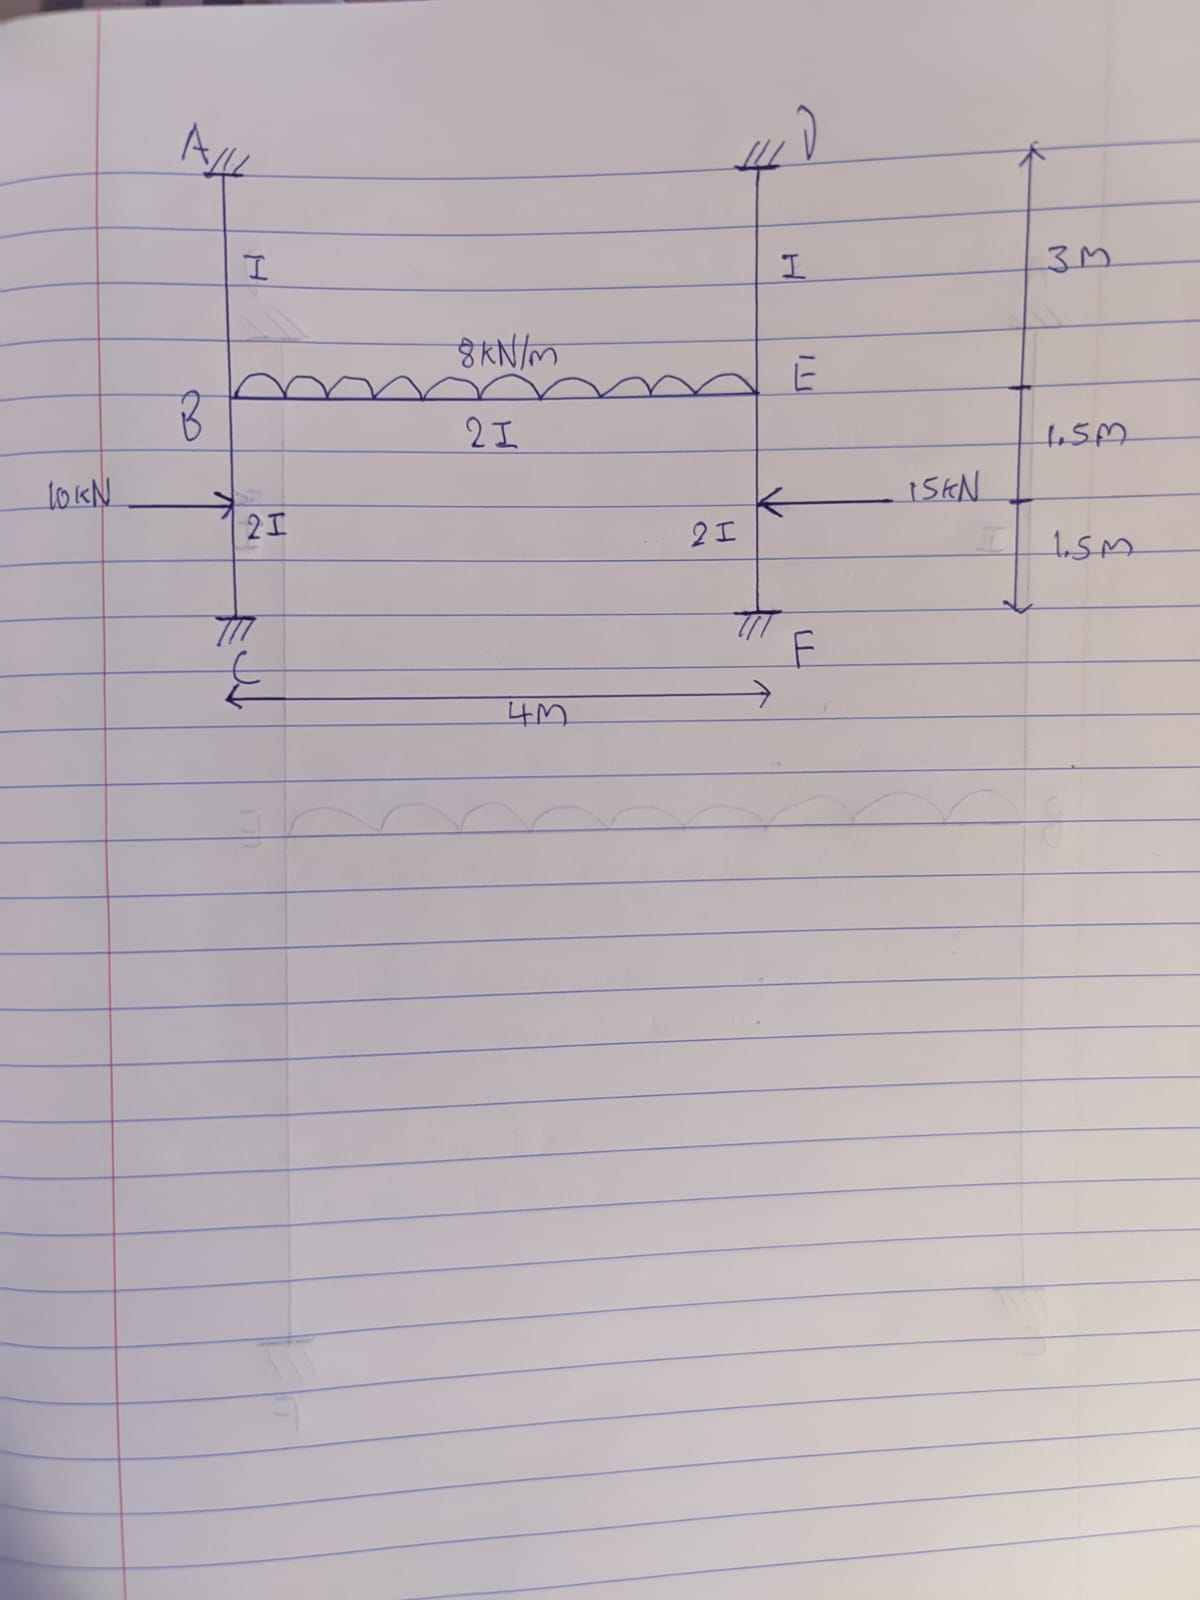 A
D
I
I
3M
8kN/m
E
B
2I
1.5M
10kN
15kN
2I
2I
1.5M
C
F
4M